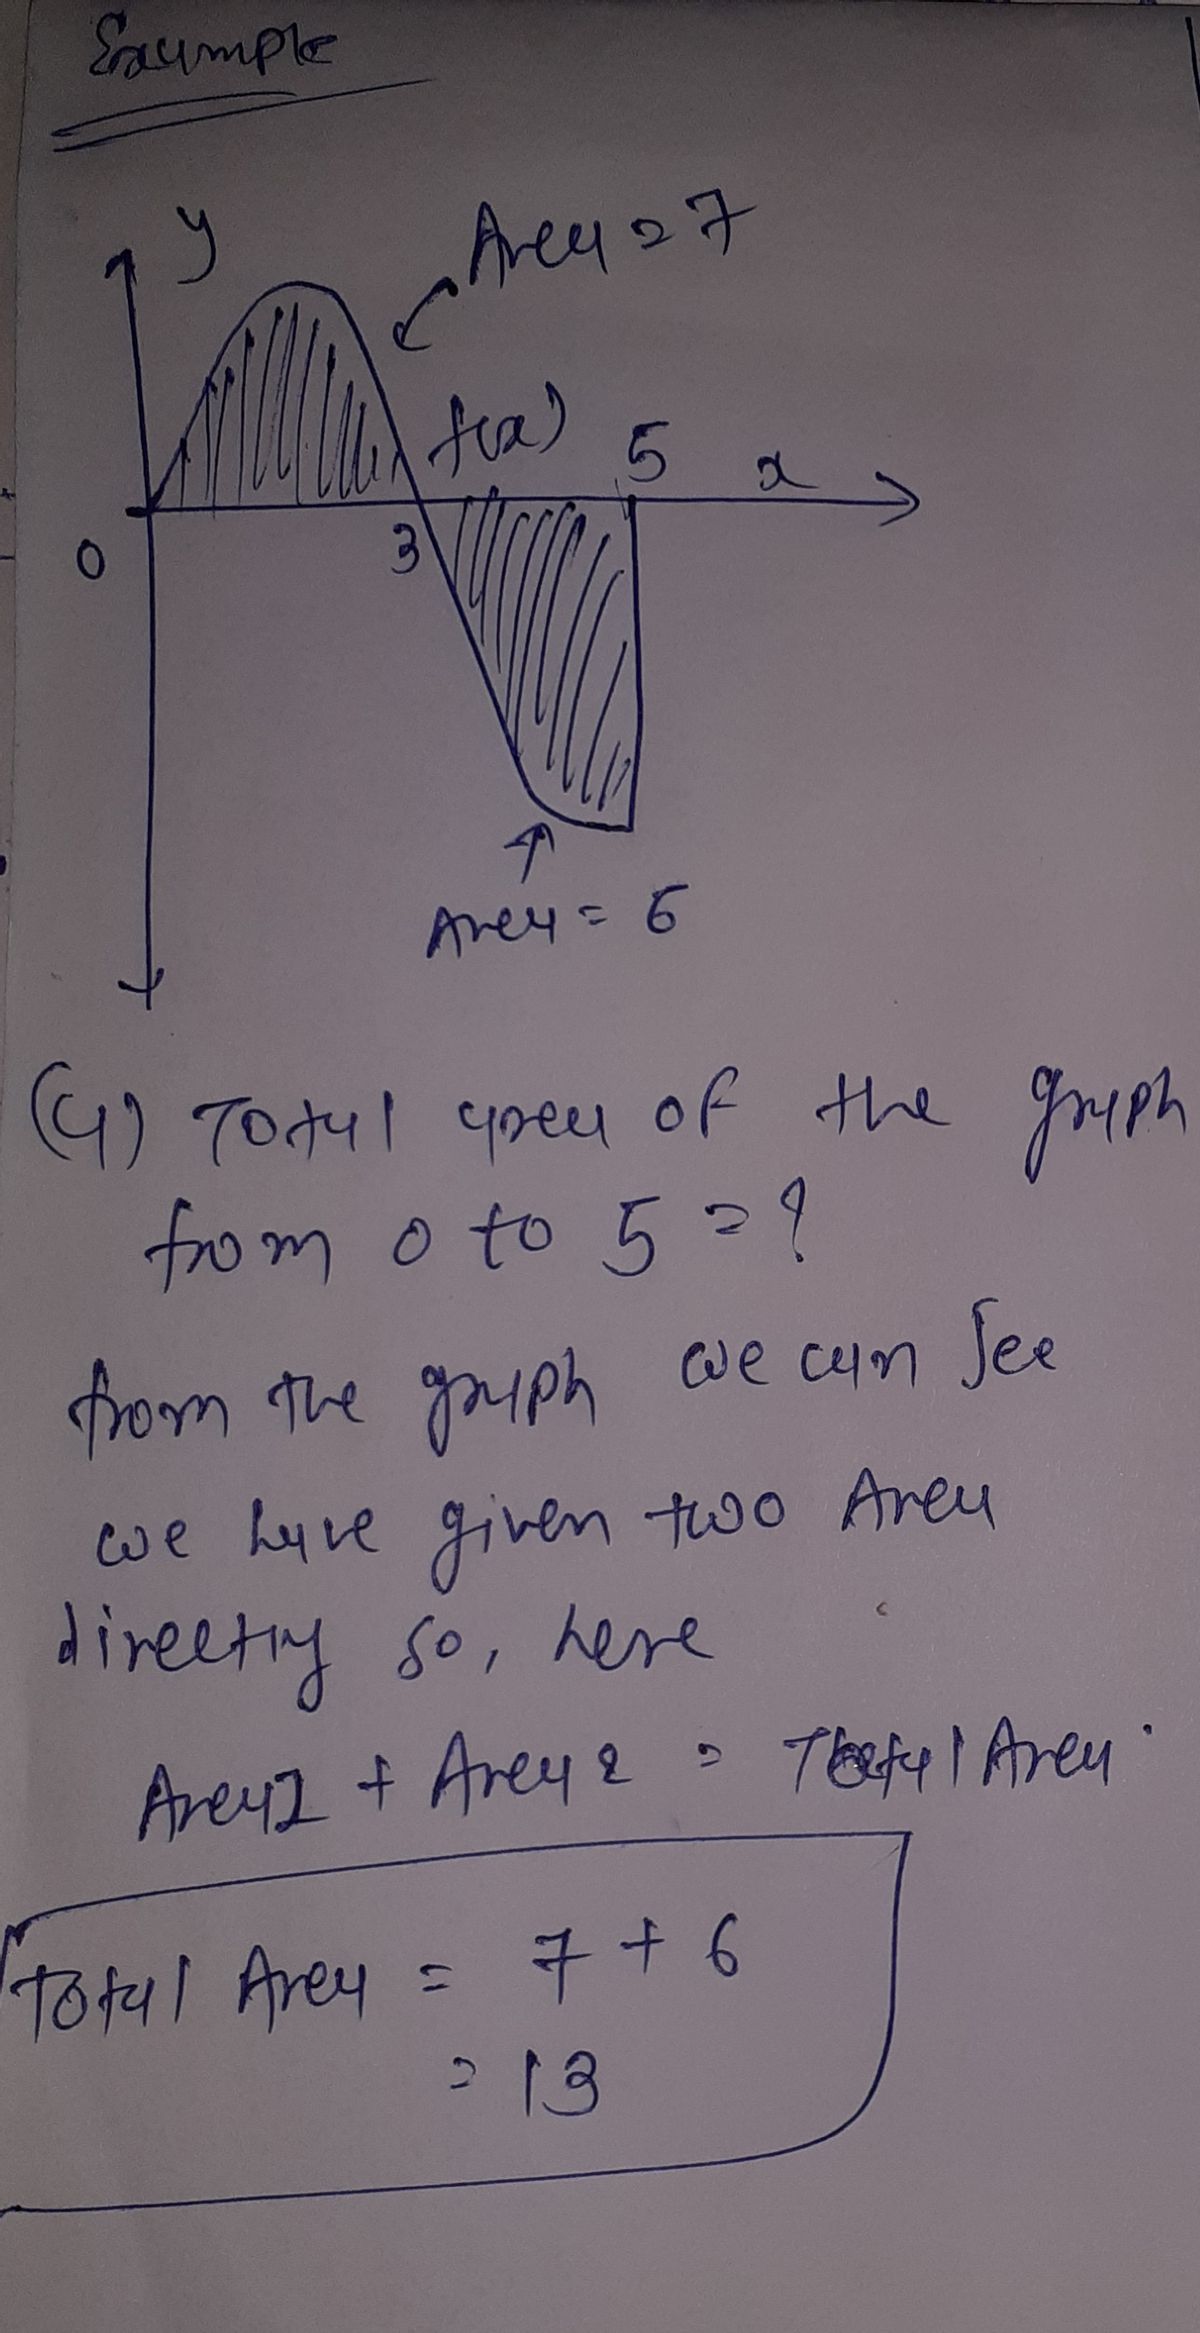 Example
y
Area = 7
f(x)
5
x
0
3
Area = 6
(a) Total area of the graph
from 0 to 5 = ?
from the graph we can see
we have given two Area
directly so, here
Area1 + Area2 = Total Area.
Total Area = 7 + 6
= 13